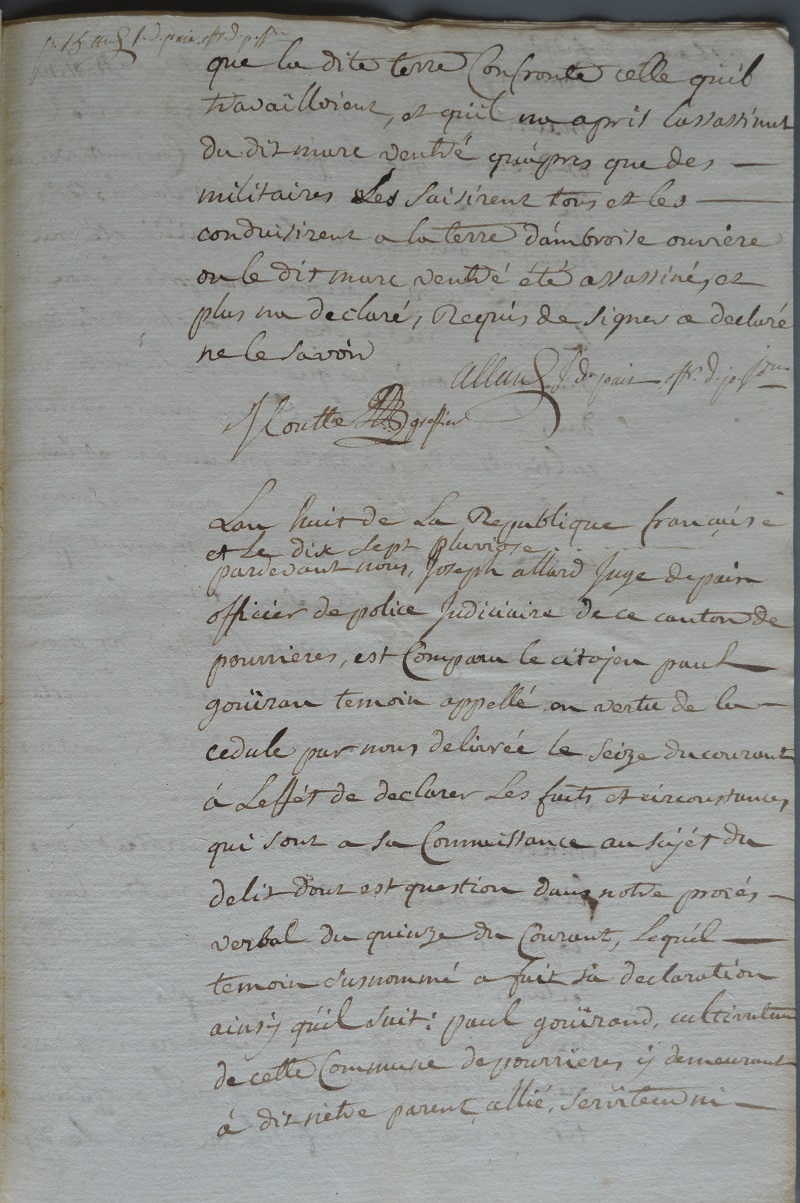 que la dite terre Confronte celle quil
travaïlloient, et quil na apris lassassinat
du dit marc ventré quápres que des —
militaires Les saisirent tous et les —
conduisirent a la terre dámbroise ouvière
ou le dit marc ventré été assassiné, et
plus na declaré, Requis de signer a declaré
ne le savoir
allard J. de paix off. de p.
greffier
Lan huit de La Republique francaise
et Le dix sept pluviose
pardevant nous, Joseph allard Juge depaix
officier de police Judiciaire de ce canton de
pourrieres, est Comparu le citoyen paul —
goüiran temoin appellé en vertu de la —
cedule par nous delivrée le seize du courant
á Leffét de declarer Les faits et circonstances
qui sont a sa Connaissance au sujét du
delit dont est question dans notre procés —
verbal du quinze du Courant, Lequél —
temoin susnommé a fait sa declaration
ainsÿ quíl suit: paul goüirand, cultivateur
de cette Commune de pourrieres ÿ demeurant
á dit nètre parent, allié, serviteur ni —